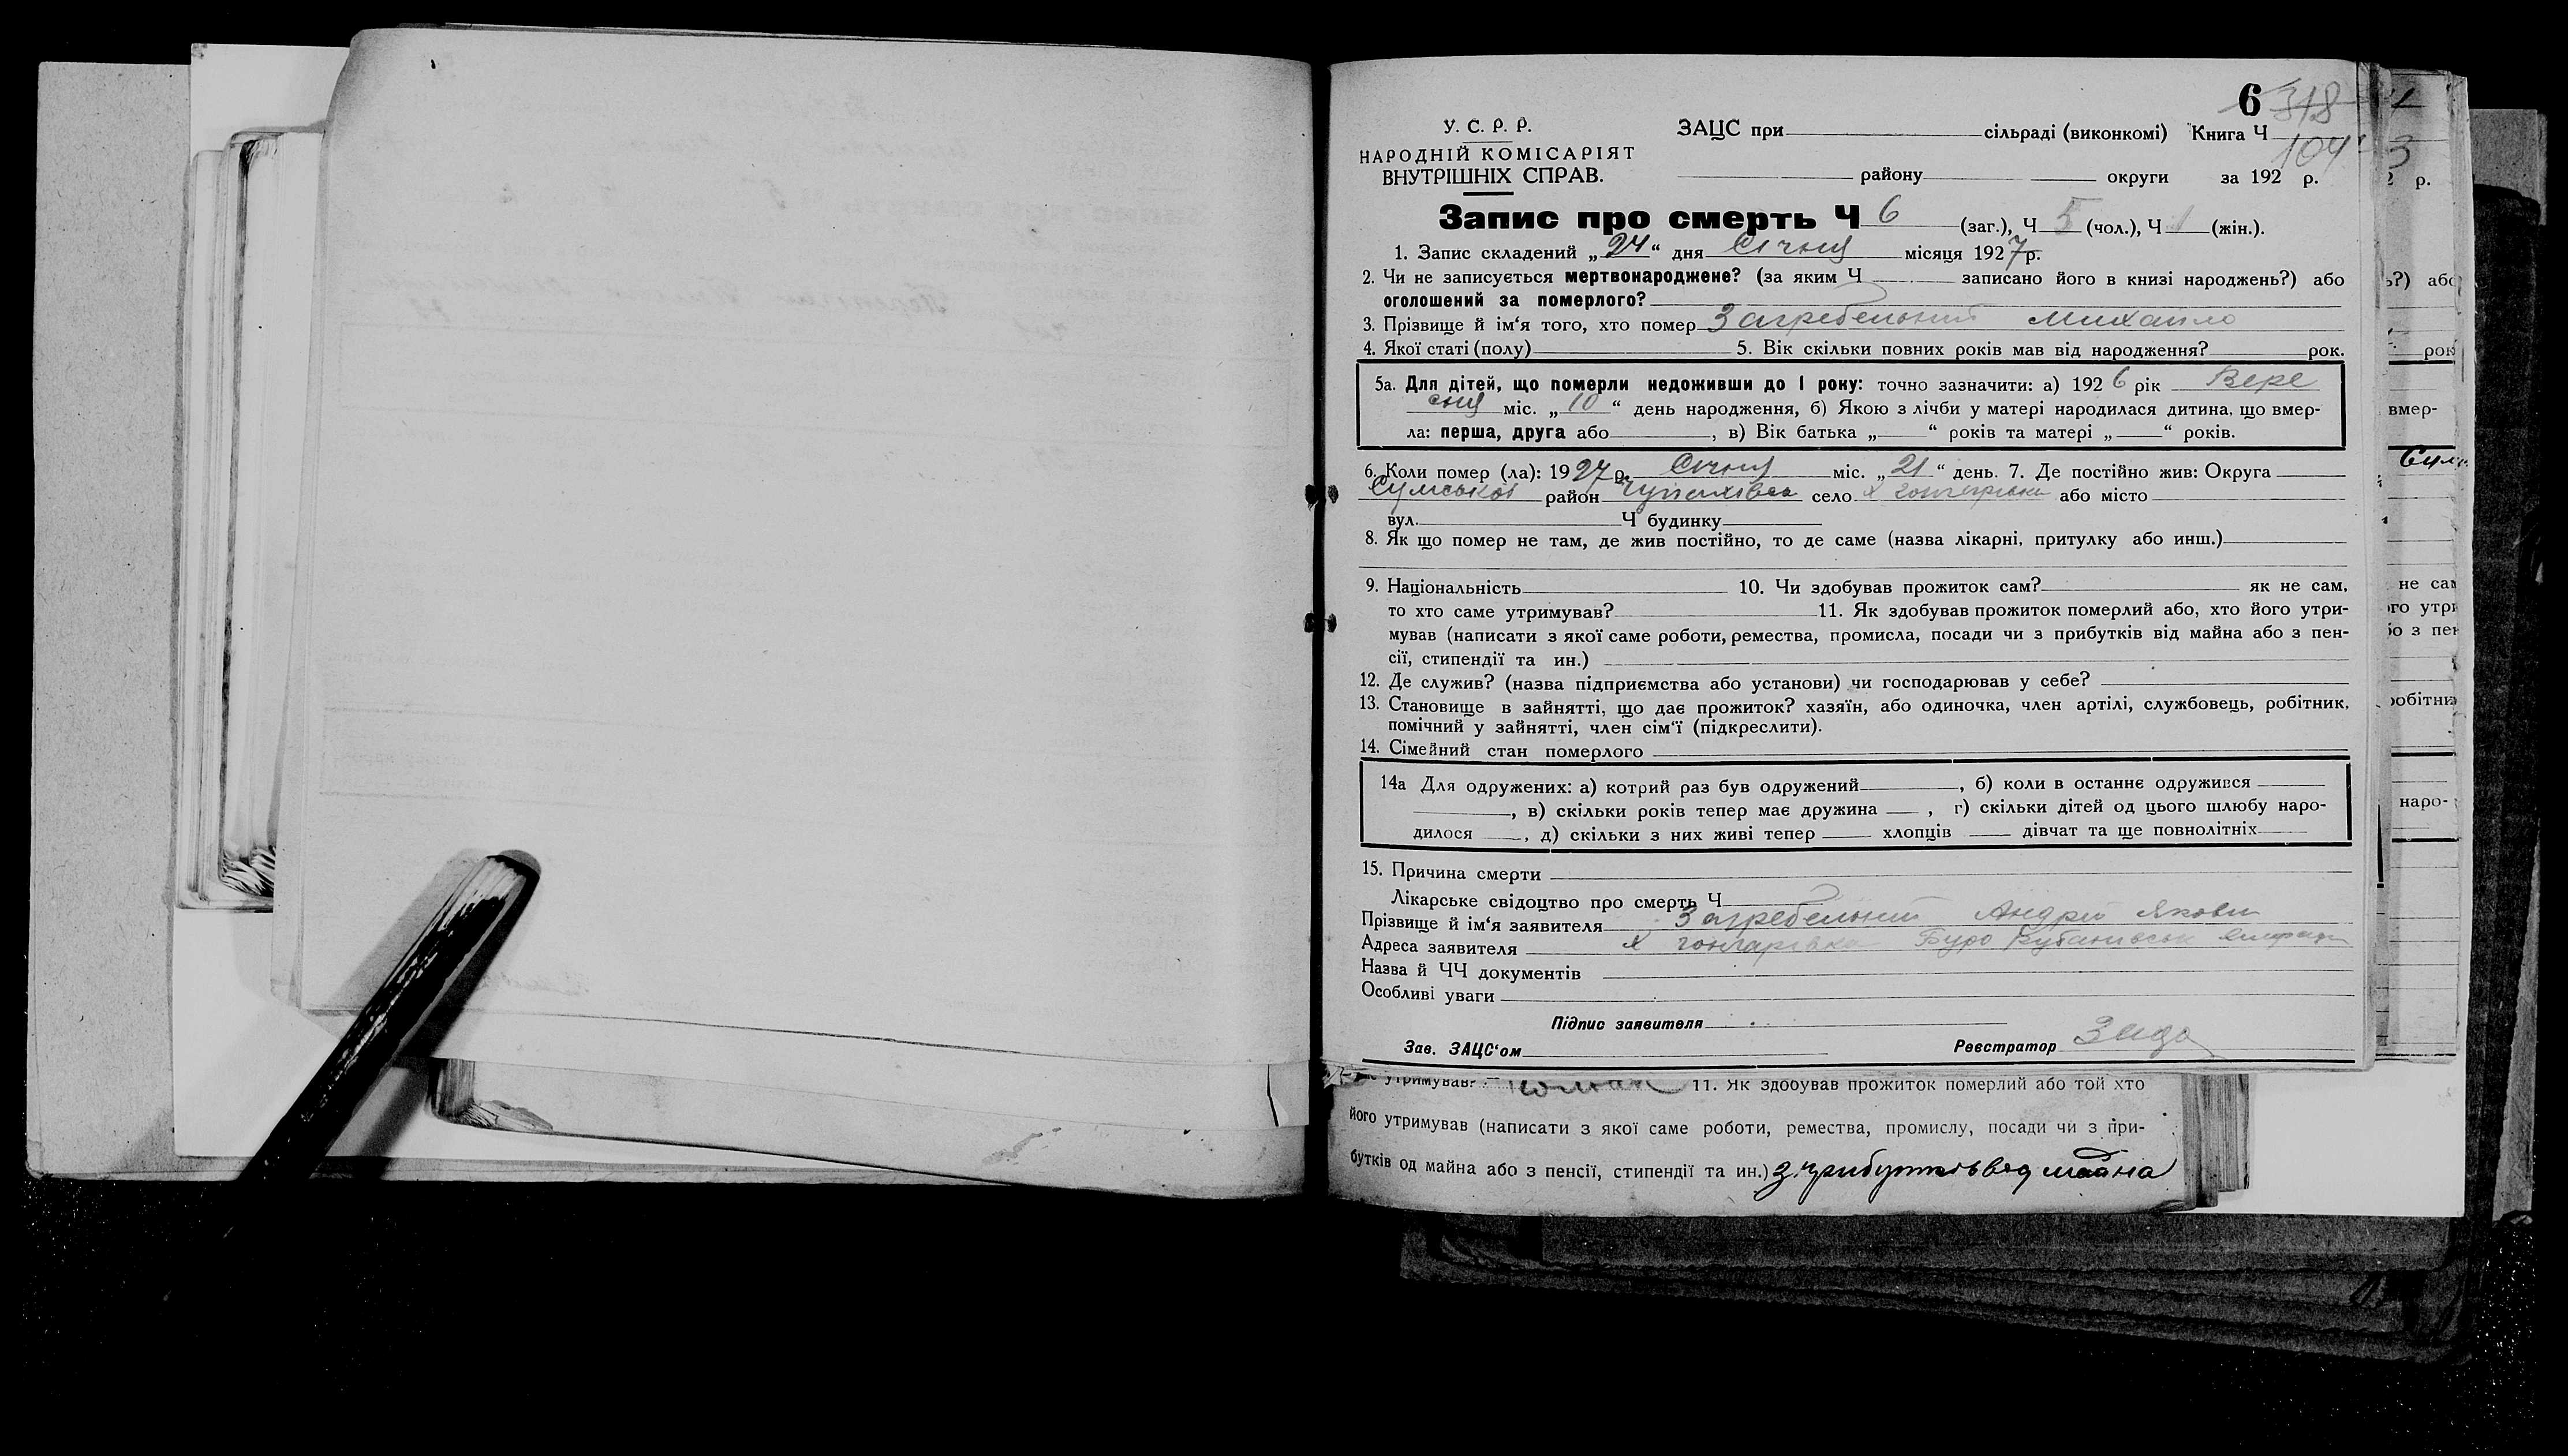 6 318
У. С. Р. Р.
НАРОДНІЙ КОМІСАРІЯТ
ВНУТРІШНІХ СПРАВ.
ЗАЦС при сільраді (виконкомі) Книга Ч
104
району округи за 192 р.
Запис про смерть Ч 6 (заг.), Ч 5 (чол.), Ч 1 (жін.).
1. Запис складений „24“ дня Січня місяця 1927 р.
2. Чи не записується мертвонароджене? (за яким Ч записано його в книзі народжень?) або
оголошений за померлого?
3. Прізвище й ім‘я того, хто помер Загребельний Михайло
4. Якої статі (полу) 5. Вік скільки повних років мав від народження? рок.
5а. Для дітей, що померли недоживши до 1 року: точно зазначити: а) 1926 рік Вере
сня міс. „10“ день народження, б) Якою з лічби у матері народилася дитина, що вмер-
ла: перша, друга або , в) Вік батька „ “ років та матері „ “ років.
6. Коли помер (ла): 1927 р. Січня міс. „21“ день. 7. Де постійно жив: Округа
Сумської район село х або місто
вул. Ч будинку
8. Як що помер не там, де жив постійно, то де саме (назва лікарні, притулку або инш.)
9. Національність 10. Чи здобував прожиток сам? як не сам,
то хто саме утримував? 11. Як здобував прожиток померлий або, хто його утри-
мував (написати з якої саме роботи, ремества, промисла, посади чи з прибутків від майна або з пен-
сії, стипендії та ин.)
12. Де служив? (назва підприємства або установи) чи господарював у себе?
13. Становище в зайнятті, що дає прожиток? хазяїн, або одиночка, член артілі, службовець, робітник,
помічний у зайнятті, член сім‘ї (підкреслити).
14. Сімейний стан померлого
14а Для одружених: а) котрий раз був одружений , б) коли в останнє одружився
, в) скільки років тепер має дружина , г) скільки дітей од цього шлюбу наро-
дилося , д) скільки з них живі тепер хлопців дівчат та ще повнолітніх
15. Причина смерти
Лікарське свідоцтво про смерть Ч
Прізвище й ім‘я заявителя Загребельний Андрій
Адреса заявителя х Гончарівка
Назва й ЧЧ документів
Особливі уваги
Підпис заявителя
Зав. ЗАЦС‘ом Реєстратор
утримував? 11. Як здобував прожиток померлий або той хто
його утримував (написати з якої саме роботи, ремества, промислу, посади чи з при-
бутків од майна або з пенсії, стипендії та ин.) з прибутків від майна